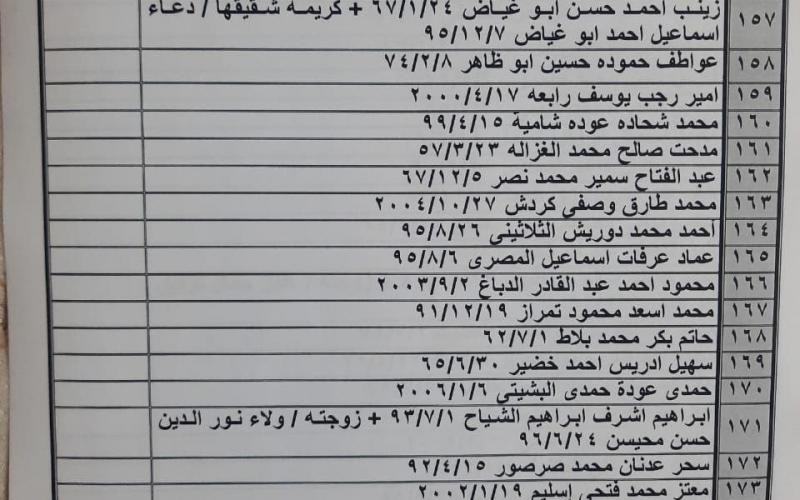 ١٥٧ زينب احمد حسن ابو غياض ٦٧/١/٢٤ + كريمة شقيقها / دعاء
اسماعيل احمد ابو غياض ٩٥/١٢/٧
١٥٨ عواطف حموده حسين ابو ظاهر ٧٤/٢/٨
١٥٩ امير رجب يوسف رابعه ٢٠٠٠/٤/١٧
١٦٠ محمد شحاده عوده شامية ٩٩/٤/١٥
١٦١ مدحت صالح محمد الغزاله ٥٧/٣/٢٣
١٦٢ عبد الفتاح سمير محمد نصر ٦٧/١٢/٥
١٦٣ محمد طارق وصفي كردش ٢٠٠٤/١٠/٢٧
١٦٤ احمد محمد دوريش الثلاثيني ٩٥/٨/٢٦
١٦٥ عماد عرفات اسماعيل المصرى ٩٥/٨/٦
١٦٦ محمود احمد عبد القادر الدباغ ٢٠٠٣/٩/٢
١٦٧ محمد اسعد محمود تمراز ٩١/١٢/١٩
١٦٨ حاتم بكر محمد بلاط ٦٢/٧/١
١٦٩ سهيل ادريس احمد خضير ٦٥/٦/٣٠
١٧٠ حمدى عودة حمدى البشيتي ٢٠٠٦/١/٦
١٧١ ابراهيم اشرف ابراهيم الشياح ٩٣/٧/١ + زوجته / ولاء نور الدين
حسن محيسن ٩٦/٦/٢٤
١٧٢ سحر عدنان محمد صرصور ٩٢/٤/١٥
١٧٣ معتز محمد فتحي اسليم ٢٠٠٢/١/١٩